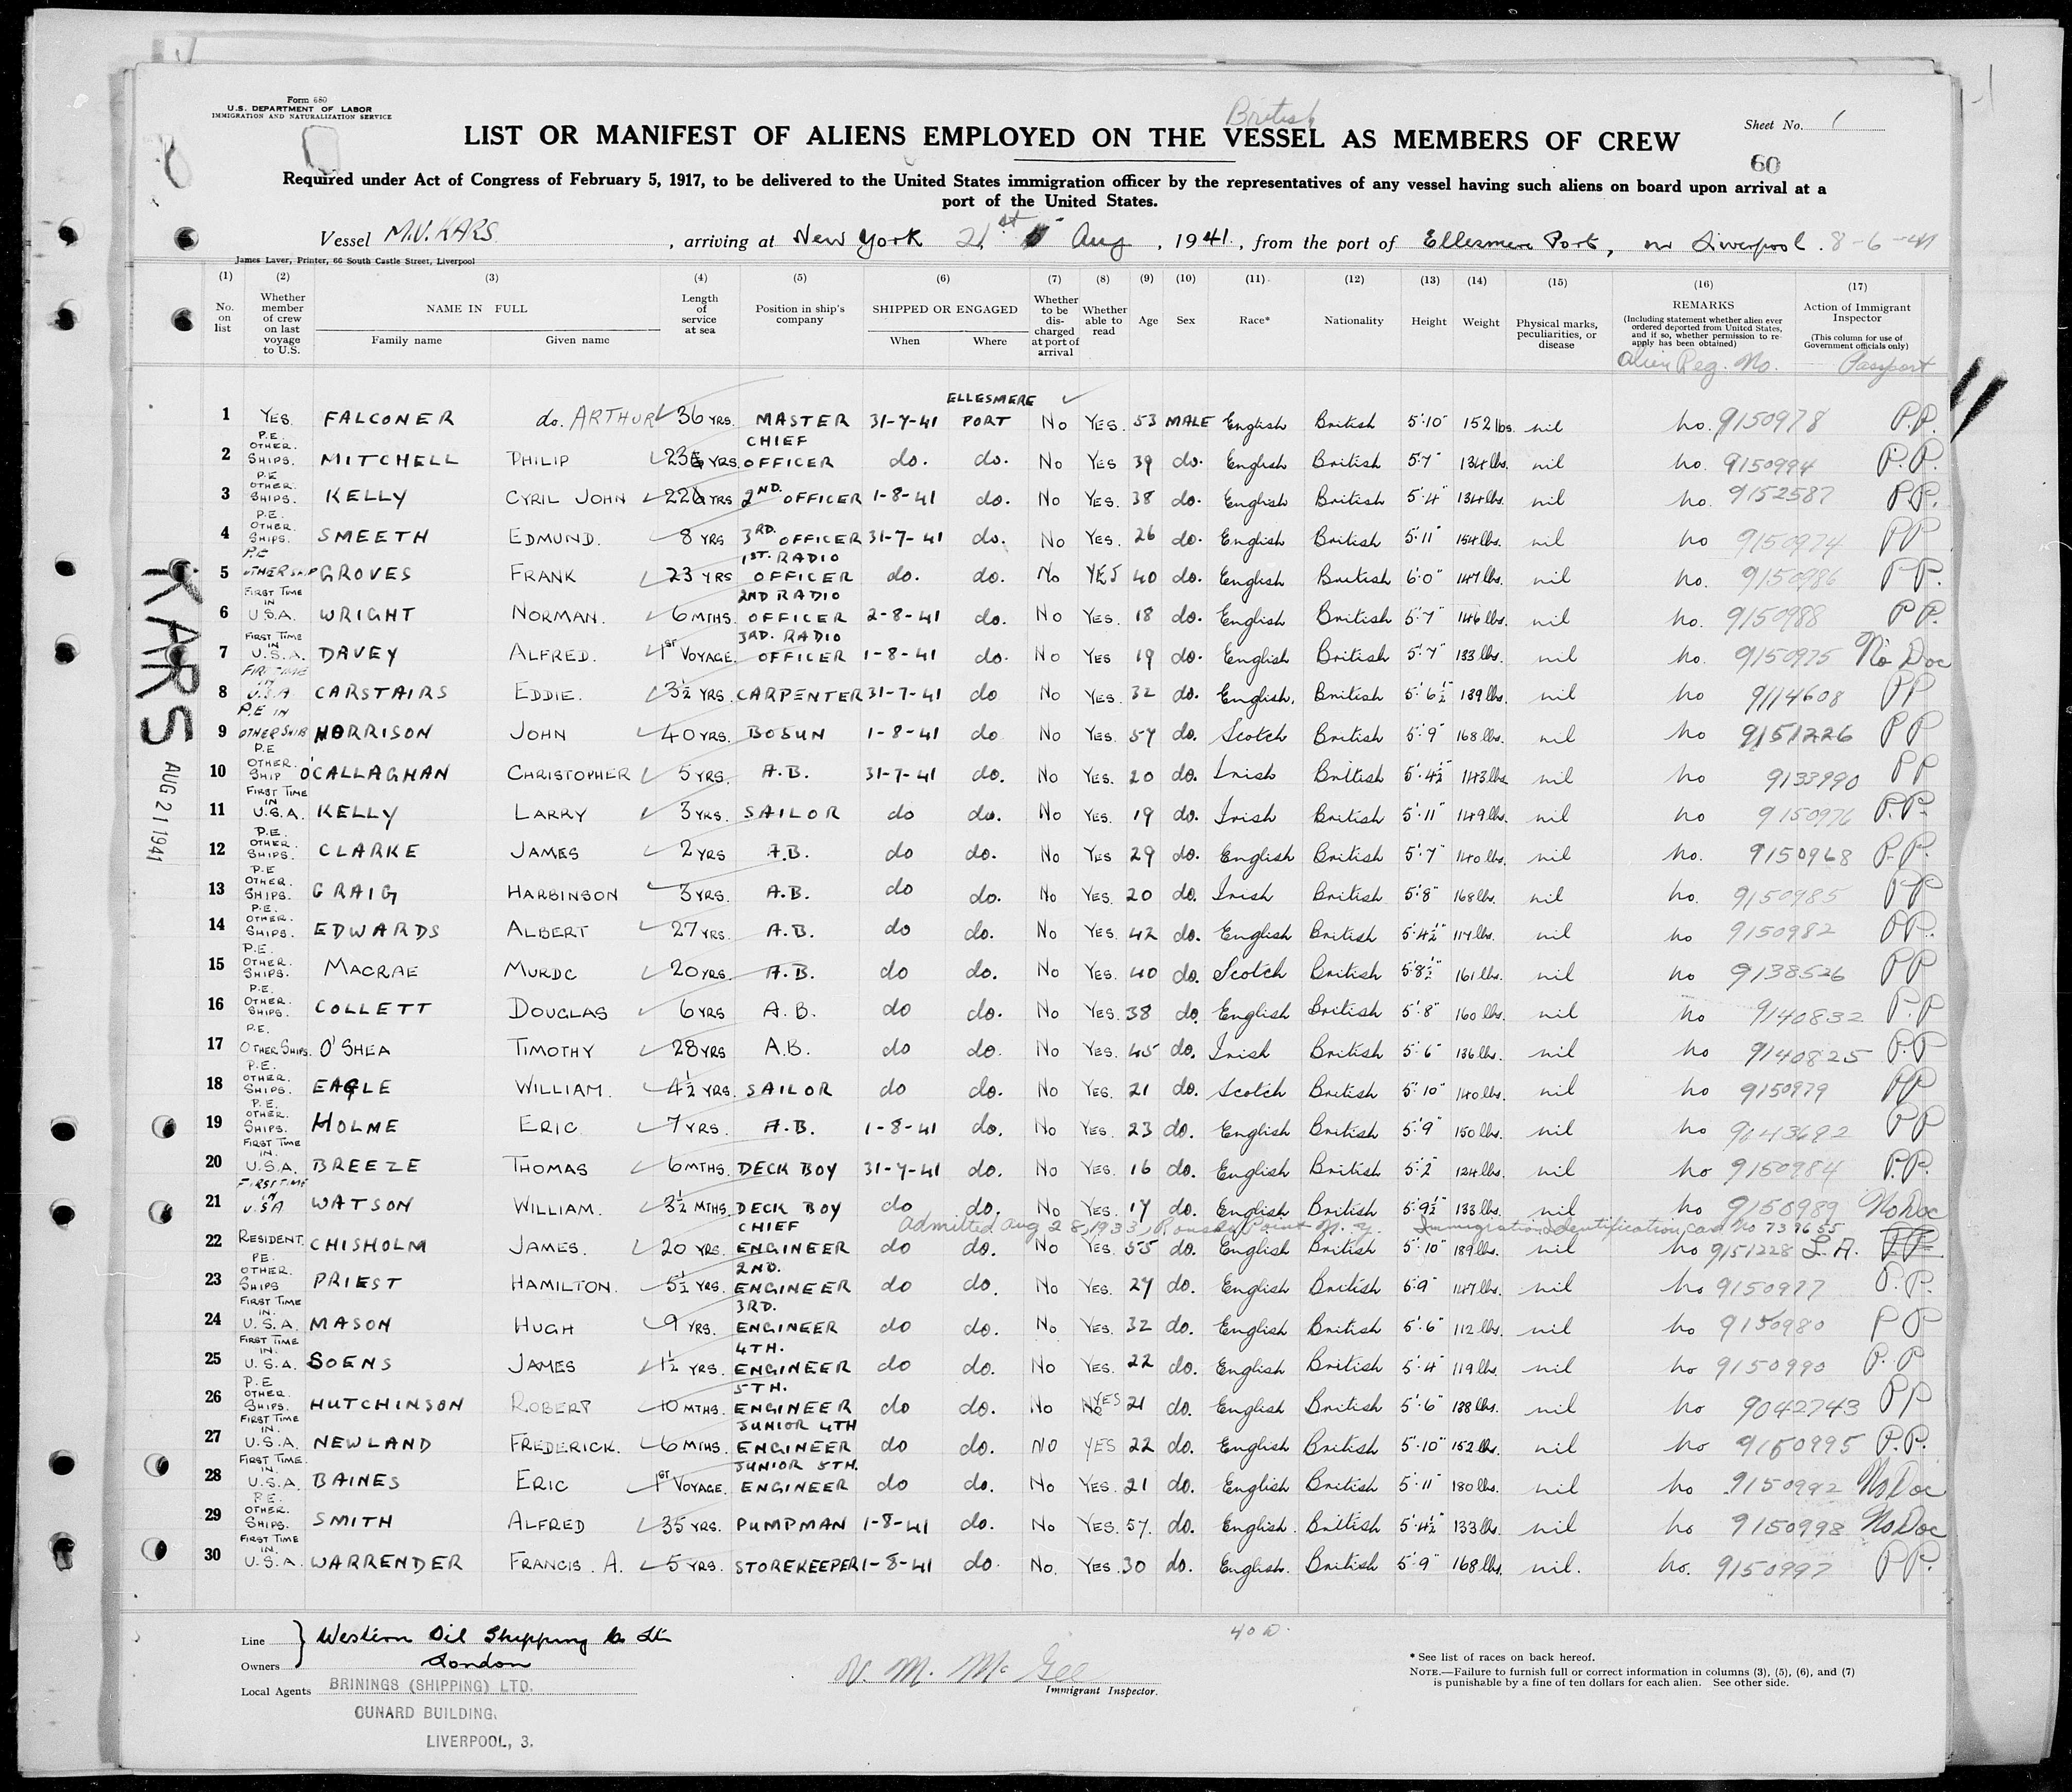 Form 680
U.S. DEPARTMENT OF LABOR
IMMIGRATION AND NATURALIZATION SERVICE
British
Sheet No. 1
LIST OR MANIFEST OF ALIENS EMPLOYED ON THE VESSEL AS MEMBERS OF CREW
60
Required under Act of Congress of February 5, 1917, to be delivered to the United States immigration officer by the representatives of any vessel having such aliens on board upon arrival at a
port of the United States.
Vessel M.V. KARS, arriving at New York 21st Aug, 1941, from the port of Ellesmere Port, nr Liverpool. 8-6-41
James Laver, Printer, 66 South Castle Street, Liverpool
(1) (2) (3) (4) (5) (6) (7) (8) (9) (10) (11) (12) (13) (14) (15) (16) (17)
No. on list
Whether member of crew on last voyage to U.S.
NAME IN FULL
Family name Given name
Length of service at sea
Position in ship's company
SHIPPED OR ENGAGED
When Where
Whether to be discharged at port of arrival
Whether able to read
Age Sex Race* Nationality Height Weight
Physical marks, peculiarities, or disease
REMARKS
(Including statement whether alien ever ordered deported from United States, and if so, whether permission to reapply has been obtained)
Alien Reg. No.
Action of Immigrant Inspector
(This column for use of Government officials only)
Passport
KARS
AUG 21 1941
1 YES. FALCONER do. ARTHUR 36 YRS. MASTER 31-7-41 ELLESMERE PORT No YES. 53 MALE English British 5'10" 152 lbs. nil no. 9150978 P.P.
2 P.E. OTHER SHIPS. MITCHELL PHILIP 23 YRS. CHIEF OFFICER do. do. No YES 39 do. English British 5'7" 134 lbs. nil no. 9150994 P.P.
3 P.E OTHER SHIPS. KELLY CYRIL JOHN 22 YRS 2ND. OFFICER 1-8-41 do. No YES. 38 do. English British 5'4" 134 lbs. nil no. 9152587 P.P.
4 P.E. OTHER SHIPS. SMEETH EDMUND. 8 YRS 3RD. OFFICER 31-7-41 do. No YES. 26 do. English British 5'11" 154 lbs. nil no 9150974 PP
5 P.E OTHER SHIP GROVES FRANK 23 YRS 1ST. RADIO OFFICER do. do. No YES 40 do. English British 6'0" 147 lbs. nil no. 9150986 P.P.
6 FIRST TIME IN U.S.A. WRIGHT NORMAN. 6 MTHS. 2ND RADIO OFFICER 2-8-41 do. No YES. 18 do. English British 5'7" 146 lbs. nil no. 9150988 P.P.
7 FIRST TIME IN U.S.A. DAVEY ALFRED. 1ST VOYAGE. 3RD. RADIO OFFICER 1-8-41 do. No YES 19 do. English British 5'7" 133 lbs. nil no. 9150975 No Doc
8 FIRST TIME IN U.S.A CARSTAIRS EDDIE. 3½ YRS. CARPENTER 31-7-41 do No YES. 32 do. English. British 5'6½" 139 lbs. nil no 9114608 PP
9 P.E IN OTHER SHIP MORRISON JOHN 40 YRS. BOSUN 1-8-41 do No YES. 57 do. Scotch British 5'9" 168 lbs. nil no 9151226 PP
10 P.E OTHER SHIP O'CALLAGHAN CHRISTOPHER 5 YRS. A.B. 31-7-41 do. No YES. 20 do. Irish British 5'4½" 143 lbs nil no 9133990 PP
11 FIRST TIME IN U.S.A. KELLY LARRY 3 YRS. SAILOR do do. No YES. 19 do. Irish British 5'11" 149 lbs. nil no 9150976 P.P.
12 P.E. OTHER SHIPS. CLARKE JAMES 2 YRS A.B. do do. No YES 29 do. English British 5'7" 140 lbs. nil no. 9150968 P.P.
13 P.E OTHER SHIPS. GRAIG HARBINSON 3 YRS. A.B. do do. No YES. 20 do. Irish British 5'8" 168 lbs. nil no. 9150985 PP
14 P.E. OTHER SHIPS. EDWARDS ALBERT 27 YRS. A.B. do do. No YES. 42 do. English British 5'4½" 117 lbs. nil no 9150982 PP.
15 P.E. OTHER SHIPS. MACRAE MURDC 20 YRS. A.B. do do. No YES. 40 do. Scotch British 5'8½" 161 lbs. nil no 9138526 PP
16 P.E. OTHER SHIPS. COLLETT DOUGLAS 6 YRS A.B. do do. No YES. 38 do. English British 5'8" 160 lbs. nil no 9140832 P.P
17 P.E. OTHER SHIPS. O'SHEA TIMOTHY 28 YRS A.B. do do. No YES. 45 do. Irish British 5'6" 136 lbs. nil no 9140825 P.P
18 P.E. OTHER SHIPS. EAGLE WILLIAM. 4½ YRS. SAILOR do do. No YES. 21 do. Scotch British 5'10" 140 lbs. nil no 9150979 PP
19 P.E. OTHER SHIPS. HOLME ERIC 7 YRS. A.B. 1-8-41 do. No YES. 23 do. English British 5'9" 150 lbs. nil no 9043682 PP
20 FIRST TIME IN. U.S.A. BREEZE THOMAS 6 MTHS. DECK BOY 31-7-41 do. No YES. 16 do. English British 5'2" 124 lbs. nil no 9150984 P.P.
21 FIRST TIME IN U.S.A WATSON WILLIAM. 3½ MTHS. DECK BOY do do. No YES. 17 do. English British 5'9½" 133 lbs. nil no 9150989 No Doc
Admitted Aug 28, 1933, Rouses Point N.Y. Immigration Identification Card No 737655
22 RESIDENT. CHISHOLM JAMES. 20 YRS. CHIEF ENGINEER do do. No YES. 55 do. English British 5'10" 189 lbs. nil no 9151228 L.A. PP
23 P.E. OTHER SHIPS PRIEST HAMILTON. 5½ YRS. 2ND. ENGINEER do do. No YES. 27 do. English British 5'9" 147 lbs. nil no 9150977 P.P.
24 FIRST TIME IN. U.S.A. MASON HUGH 9 YRS. 3RD. ENGINEER do do. No YES. 32 do. English British 5'6" 112 lbs. nil no 9150980 PP
25 FIRST TIME IN. U.S.A. SOENS JAMES 1½ YRS. 4TH. ENGINEER do do. No YES. 22 do. English British 5'4" 119 lbs. nil no 9150990 P.P
26 P.E OTHER SHIPS. HUTCHINSON ROBERT 10 MTHS. 5TH. ENGINEER do do. No YES 21 do. English British 5'6" 138 lbs. nil no 9042743 PP
27 FIRST TIME IN. U.S.A. NEWLAND FREDERICK. 6 MTHS. JUNIOR 4TH ENGINEER do do. NO YES 22 do. English British 5'10" 152 lbs. nil no 9150995 P.P.
28 FIRST TIME. IN. U.S.A. BAINES ERIC 1ST VOYAGE. JUNIOR 5TH. ENGINEER do do. No YES. 21 do. English British 5'11" 180 lbs. nil no 9150992 No Doc
29 P.E. OTHER SHIPS. SMITH ALFRED 35 YRS. PUMPMAN 1-8-41 do. No YES. 57. do. English. British 5'4½" 133 lbs. nil no 9150998 No Doc
30 FIRST TIME IN. U.S.A. WARRENDER FRANCIS. A. 5 YRS. STOREKEEPER 1-8-41 do. No. YES. 30 do. English. British 5'9" 168 lbs. nil. no. 9150997 PP.
Line
Owners
Western Oil Shipping Co Ltd
London
Local Agents BRININGS (SHIPPING) LTD.
CUNARD BUILDING,
LIVERPOOL, 3.
V. M. McGee
Immigrant Inspector.
40 D.
* See list of races on back hereof.
NOTE.—Failure to furnish full or correct information in columns (3), (5), (6), and (7)
is punishable by a fine of ten dollars for each alien. See other side.